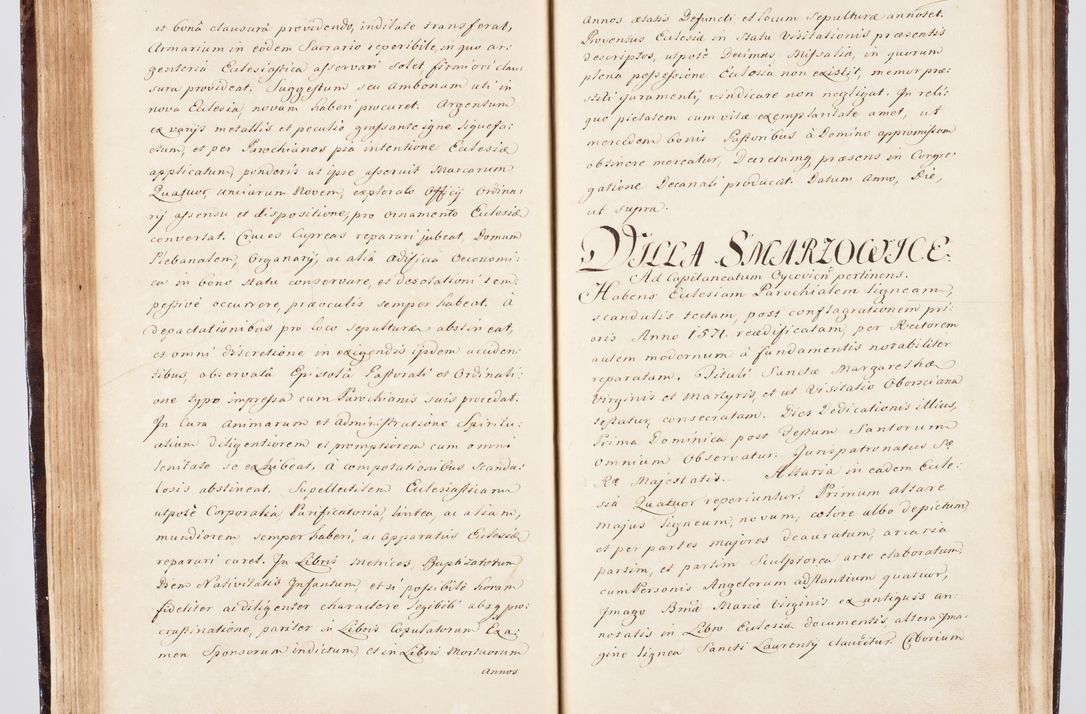 et bonâ clausurâ providendo, inditate transferat,
Armarium in eodem Sacrario reperibile, in quo ar:
genteria Eclesiastica asservari solet, firmiori clau:
sura provideat. Suggestum seu Ambonam uti in
nova Eclesia, novam haberi procuret. Argentum
ex varijs metallis et peculio grassante igne liquefa:
ctum, et per Parochianos pia intentione Eclesiæ
applicatum, ponderis ut ipse asseruit Marcarum
Quatuor, unciarum Novem, explorato Officij Ordina:
rij assensu et dispositione, pro ornamento Eclesiæ
convertat. Cruces Cupreas reparari jubeat, Domum
Plebanalem, Organarij, ac alia Ædificia Oeconomi:
ca in bono statu conservare, et desolationi tem:
pestivè occurrere, præ oculis semper habeat. à
depactationibus pro loco sepulturæ abstineat,
et omni discretione in exigendis ijsdem acciden:
tibus, observatâ Epistolâ Pastorali et Ordinati:
one typo impressa cum Parochianis suis procedat.
In Cura Animarum et Administratione Spiritu:
alium diligentiorem et promptiorem cum omni
lenitate se exhibeat, à compotationibus scanda:
losis abstineat. Supellectilem Eclesiasticam
utpote Corporalia Purificatoria, lintea, ac aliam,
mundiorem semper haberi, ac apparatus Eclesiæ
reparari curet. In Libris Metrices, Baptizatorum
Diem Nativitatis Infantum, et si possibile horam
fideliter ac diligenter charactere legibili absq pro:
crastinatione, pariter in Libris Copulatorum Exa:
men Sponsorum indictum, et in Libris Mortuorum
annos
annos ætatis Defuncti et locum sepulturæ annotet.
Proventus Eclesiæ in statu Visitationis præsentis
descriptos, utpotè Decimas, Missalia, in quorum
plena possessione Eclesia non existit, memor præ:
stiti juramenti, vindicare non negligat. In reli:
quo pietatem cum vitæ exemplaritate amet, ut
mercedem bonis Pastoribus à Domino appromissam
obtinere mereatur, Decretumq præsens in Congre:
gatione Decanali producat. Datum Anno, Die,
ut supra.
VILLA SMARZOWICE.
Ad Capitaneatum Oycovien pertinens.
Habens Eclesiam Parochialem ligneam,
scandulis tectam, post conflagrationem pri:
oris Anno 1571. reædificatam, per Rectorem
autem modernum à fundamentis notabiliter
reparatam. Tituli Sanctæ Margarethæ
Virginis et Martyris, et ut Visitatio Oborsciana
testatur, consecratam. Dies Dedicationis illius,
Prima Dominica post Festum Santorum
omnium observatur. Jurispatronatus Sæ
Ræ Majestatis. Altaria in eadem Ecle:
sia Quatuor reperiuntur. Primum altare
majus ligneum, novum, colore albo depictum
et per partes majores deauratum, arcaria
partim, et partim Sculptorea arte elaboratum,
cum Personis Angelorum adstantium quatuor,
Imago Bmæ Mariæ Virginis ex antiquis an:
notatis in Libro Eclesiæ documentis, altera Ima:
gine lignea Sancti Laurentij clauditur. Ciborium